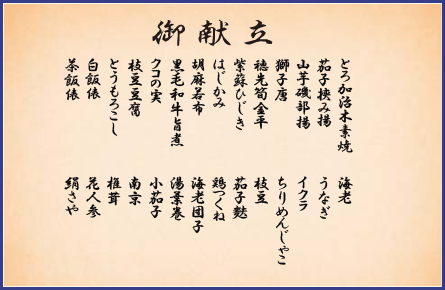 御献立
とろ加治木素焼
茄子挟み揚
山芋磯部揚
獅子唐
穂先筍金平
紫蘇ひじき
はじかみ
胡麻若布
黒毛和牛旨煮
クコの実
枝豆豆腐
とうもろこし
白飯俵
茶飯俵
海老
うなぎ
イクラ
ちりめんじゃこ
枝豆
茄子麩
鶏つくね
海老団子
湯葉巻
小茄子
南京
椎茸
花人参
絹さや